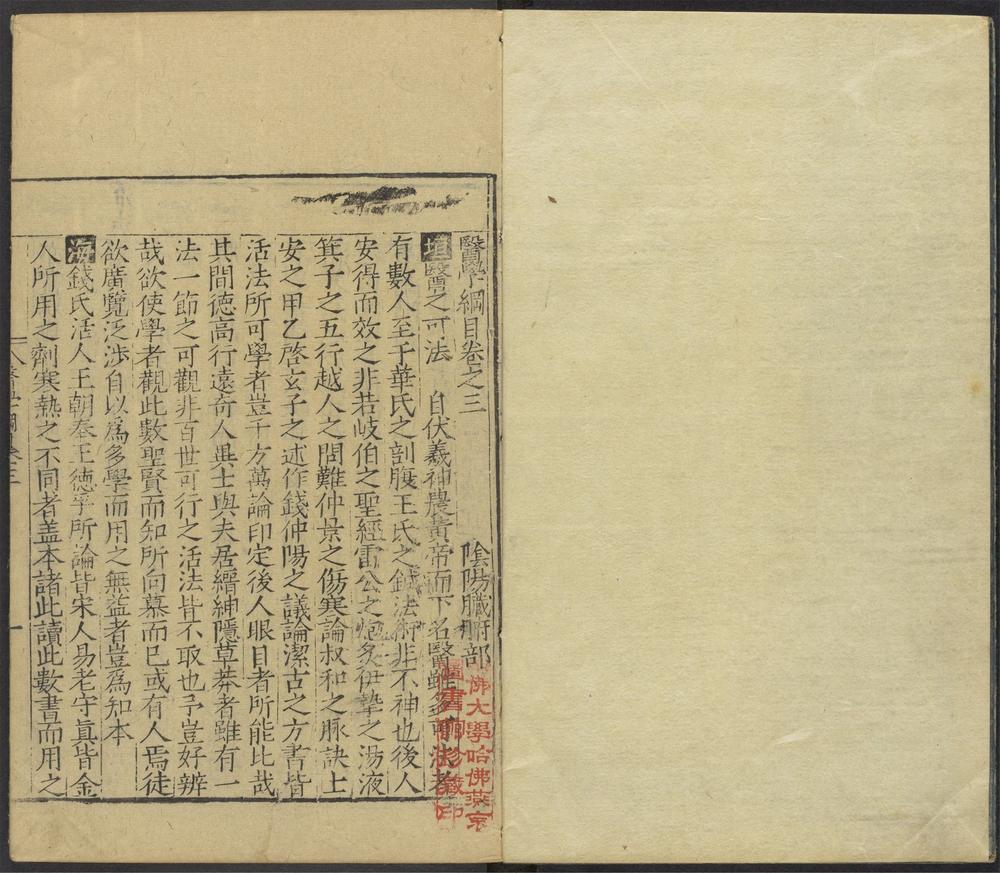 醫學綱目卷之三 陰陽臟腑部
垣醫之可法 自伏羲神農黃帝而下名醫雖多可法者
有數人至于華氏之剖腹王氏之鍼法術非不神也後人
安得而效之非若岐伯之聖經雷公之炮炙伊摯之湯液
箕子之五行越人之問難仲景之傷寒論叔和之脉訣士
安之甲乙啓玄子之述作錢仲陽之議論潔古之方書皆
活法所可學者豈千方萬論印定後人眼目者所能比哉
其間德高行遠奇人異士與夫居縉紳隱草莽者雖有一
法一節之可觀非百世可行之活法皆不取也予豈好辨
哉欲使學者觀此數聖賢而知所向慕而已或有人焉徒
欲廣覽泛涉自以爲多學而用之無益者豈爲知本
海錢氏活人王朝奉王德孚所論皆宋人易老守眞皆金
人所用之劑寒熱之不同者盖本諸此讀此數書而用之
一
佛大學哈佛燕京
圖書館珍藏印